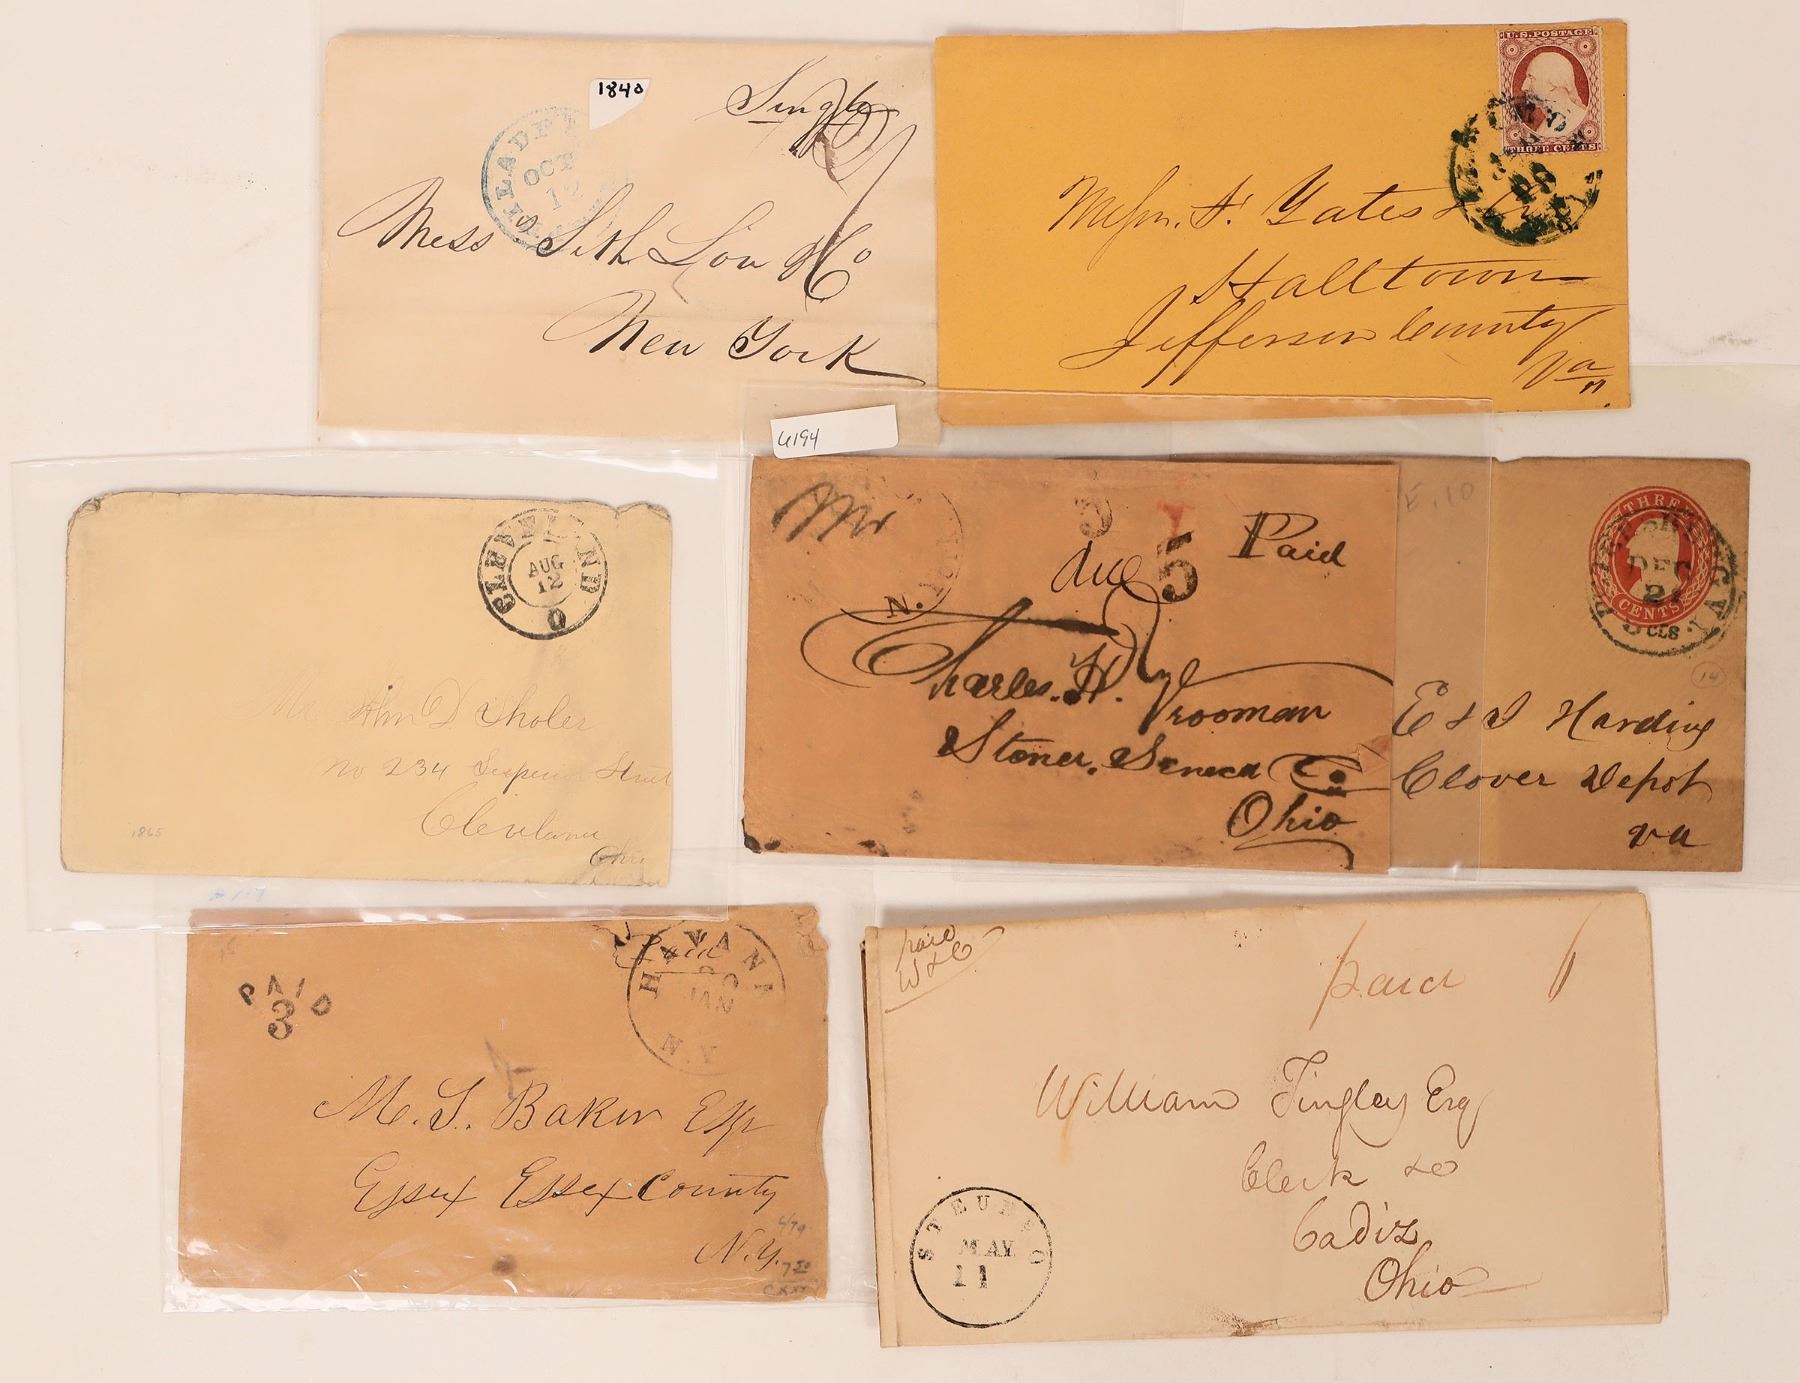 1840
Single
OCT
Mess Seth Low & Co
New York
U.S. POSTAGE
THREE CENTS
Messrs. F. Yates & Co
Halltown
Jefferson County
Va
CLEVELAND O
AUG
12
Mr John D Sholes
no 234 Superior Street
Cleveland
Ohio
1865
6194
N. YORK
3
due
5
Paid
Charles. H. Vrooman
Stoner. Seneca Co
Ohio
E.10
THREE
CENTS
DEC
2
3 cts
14
E & I Harding
Clover Depot
va
PAID
3
Paid
HAVANA
20
JAN
N.Y.
M. S. Baker Esqr
Essex Essex County
N.Y.
4/79
7 50
paid
W & C
paid
William Tingley Esq
Clerk &c
Cadiz
Ohio
STEUBN O
MAY
11